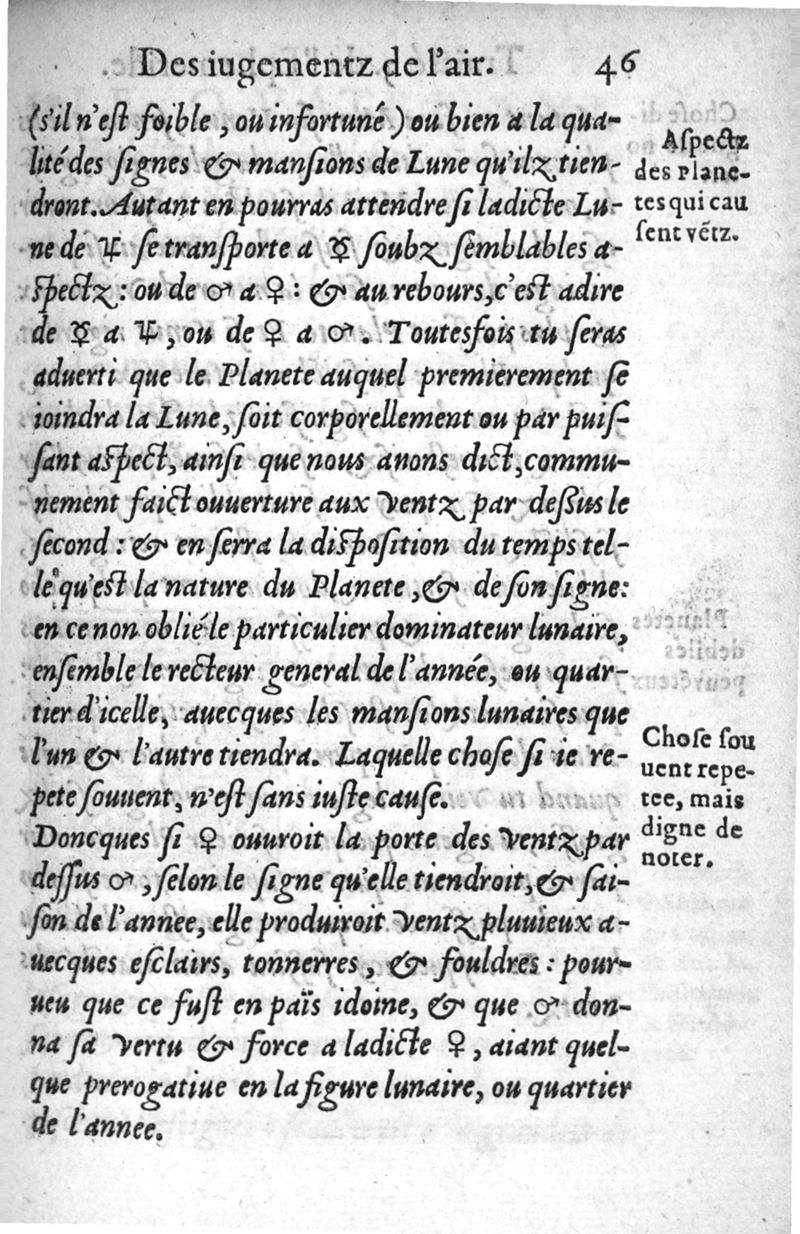 Des iugementz de l'air. 46
(s'il n'est foible, ou infortuné) ou bien a la qua-
lité des signes & mansions de Lune qu'ilz tien-
dront. Autant en pourras attendre si ladicte Lu-
ne de ♃ se transporte a ☿ soubz semblables a-
spectz: ou de ♂ a ♀: & au rebours, c'est adire
de ☿ a ♃, ou de ♀ a ♂. Toutesfois tu seras
aduerti que le Planete auquel premierement se
ioindra la Lune, soit corporellement ou par puis-
sant aspect, ainsi que nous anons dict, commu-
nement faict ouuerture aux ventz par dessus le
second: & en serra la disposition du temps tel-
le qu'est la nature du Planete, & de son signe:
en ce non oblié le particulier dominateur lunaire,
ensemble le recteur general de l'année, ou quar-
tier d'icelle, auecques les mansions lunaires que
l'un & l'autre tiendra. Laquelle chose si ie re-
pete souuent, n'est sans iuste cause.
Doncques si ♀ ouuroit la porte des ventz par
dessus ♂, selon le signe qu'elle tiendroit, & sai-
son de l'annee, elle produiroit ventz pluuieux a-
uecques esclairs, tonnerres, & fouldres: pour-
ueu que ce fust en païs idoine, & que ♂ don-
na sa vertu & force a ladicte ♀, aiant quel-
que prerogatiue en la figure lunaire, ou quartier
de l'annee.
Aspectz
des Plane-
tes qui cau
sent vẽtz.
Chose sou
uent repe-
tee, mais
digne de
noter.